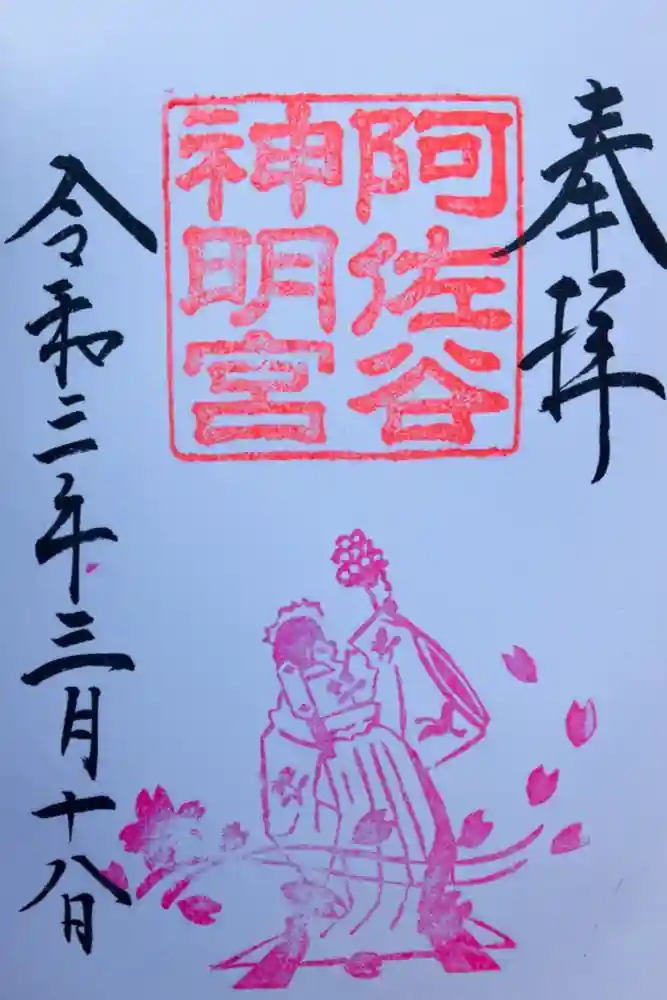 奉拝
阿佐谷
神明宮
令和三年三月十八日